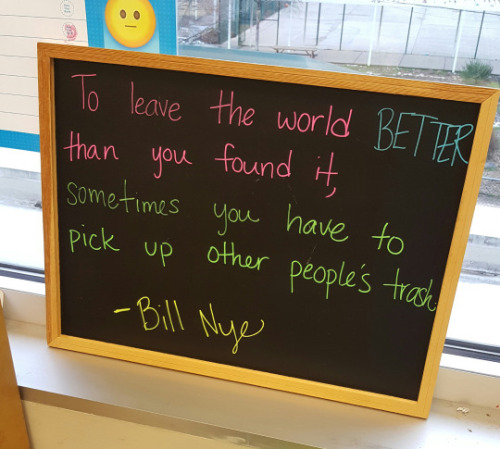 To leave the world BETTER
than you found it,
sometimes you have to
pick up other people's trash.
-Bill Nye